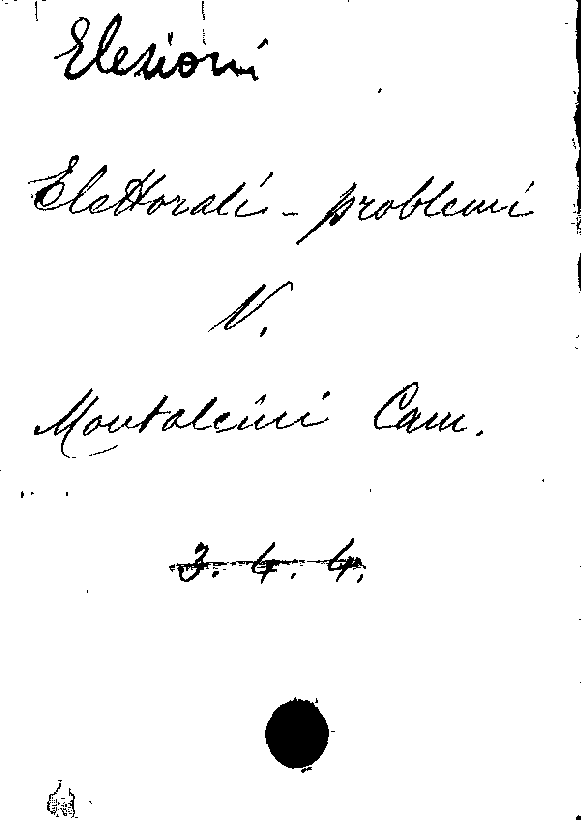 Elezioni
Elettorali - problemi
V.
Montalcini Cam.
3. 4. 4.